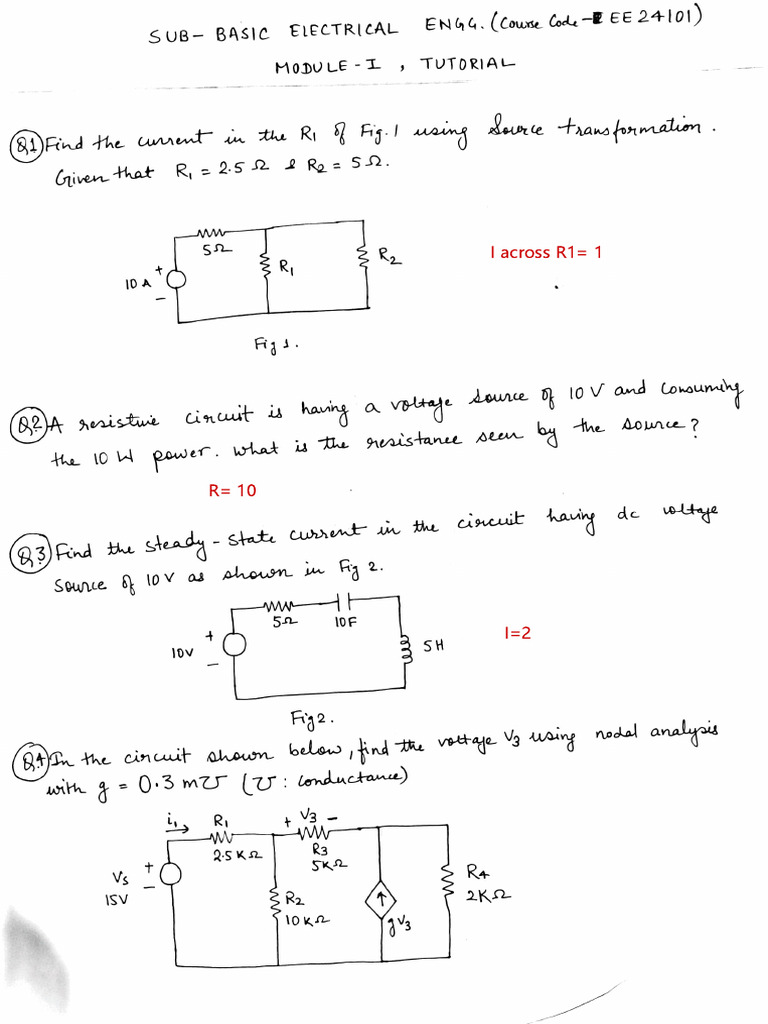 SUB- BASIC ElECTRICAL ENGG. (Course Code - EE24101)
MODULE-I , TUTORIAL
Q1) Find the current in the R1 of Fig.1 using Source transformation.
Given that R1 = 2.5 Ω & R2 = 5 Ω.
5Ω
R1
R2
10 A
+
-
I across R1= 1
Fig 1.
Q2) A resistive circuit is having a voltage source of 10 V and consuming
the 10 W power. What is the resistance seen by the source?
R= 10
Q3) Find the steady-state current in the circuit having dc voltage
source of 10 V as shown in Fig 2.
5Ω
10F
+
10V
-
5H
I=2
Fig 2.
Q4) In the circuit shown below, find the voltage V3 using nodal analysis
with g = 0.3 m℧ (℧ : conductance)
i1
R1
+ V3 -
2.5KΩ
R3
5KΩ
Vs
+
-
15V
R2
10KΩ
gV3
R4
2KΩ